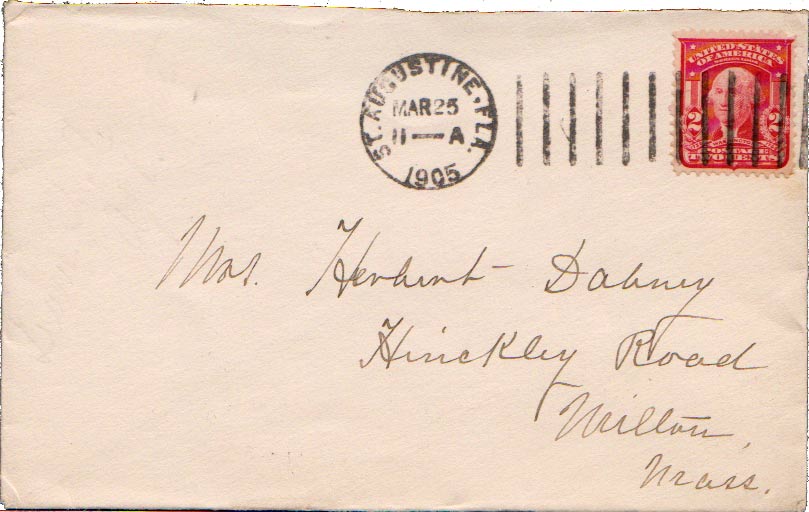 ST. AUGUSTINE, FLA.
MAR 25
11—A
1905
UNITED STATES
OF AMERICA
2 2
TWO CENTS
Mrs. Herbert Dabney
Hinckley Road
Milton,
Mass.